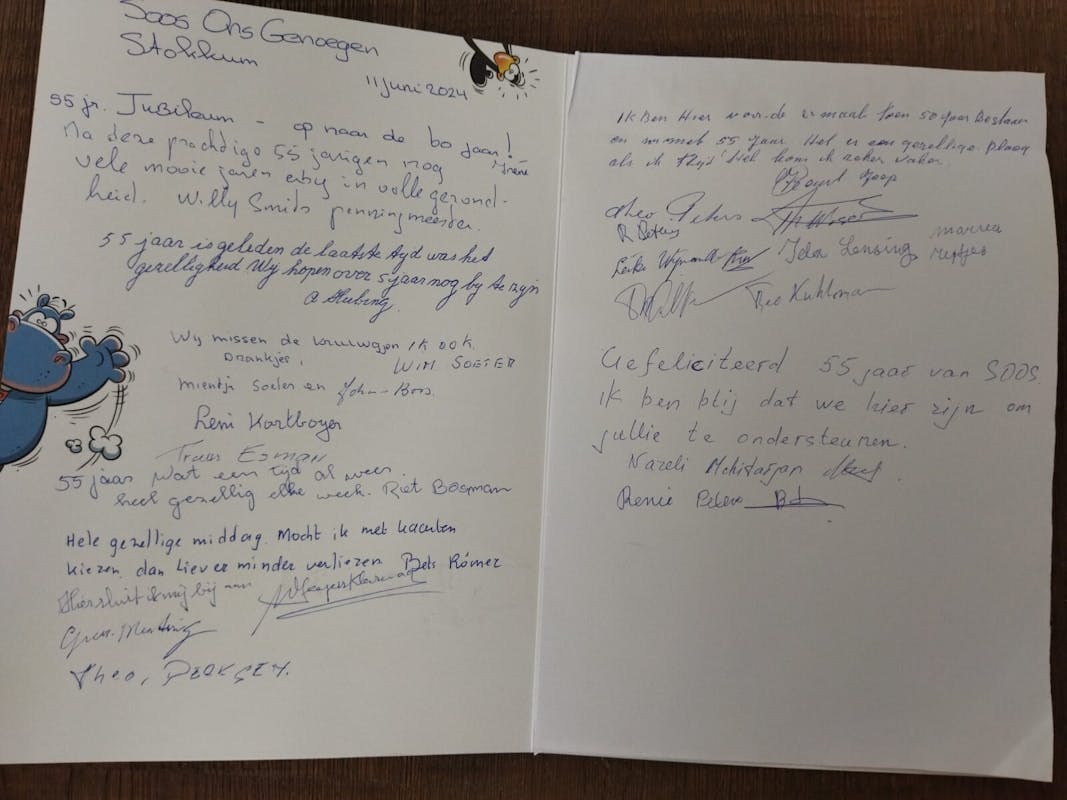 Soos Ons Genoegen
Stokkum
11 juni 2024
55 jr. Jubileum - op naar de 60 jaar!
Irene
Na deze prachtige 55 jarigen nog
vele mooie jaren erby in volle gezond-
heid. Willy Smids penningmeester.
55 jaar is geleden de laatste tyd was het
gezelligheid Wy hopen over 5 jaar nog by te zyn
Wy missen de ik ook.
Drankjes, Wim Soeter
Mientje Soeter en Johan Bos.
Leni
Truus Esman
55 jaar wat een tijd al weer
heel gezellig elke week. Riet Bosman
Hele gezellige middag. Mocht ik met kaarten
kiezen dan liever minder verliezen Bets Römer
Hier sluit ik mij bij aan
Theo, Derksen.
Ik Ben Hier voor de 2 maal toen 50 Jaar Bestaan
en nu met 55 Jaar. Het is een gezellige plaats
als ik tijd heb kom ik zeker vaker.
Joop
Theo Peters
R Peters
Ida Lensing
Theo Kuhlman
Gefeliciteerd 55 jaar van SOOS.
ik ben blij dat we hier zijn om
jullie te ondersteunen.
Nazeli Mchitarjan
Renie Peters